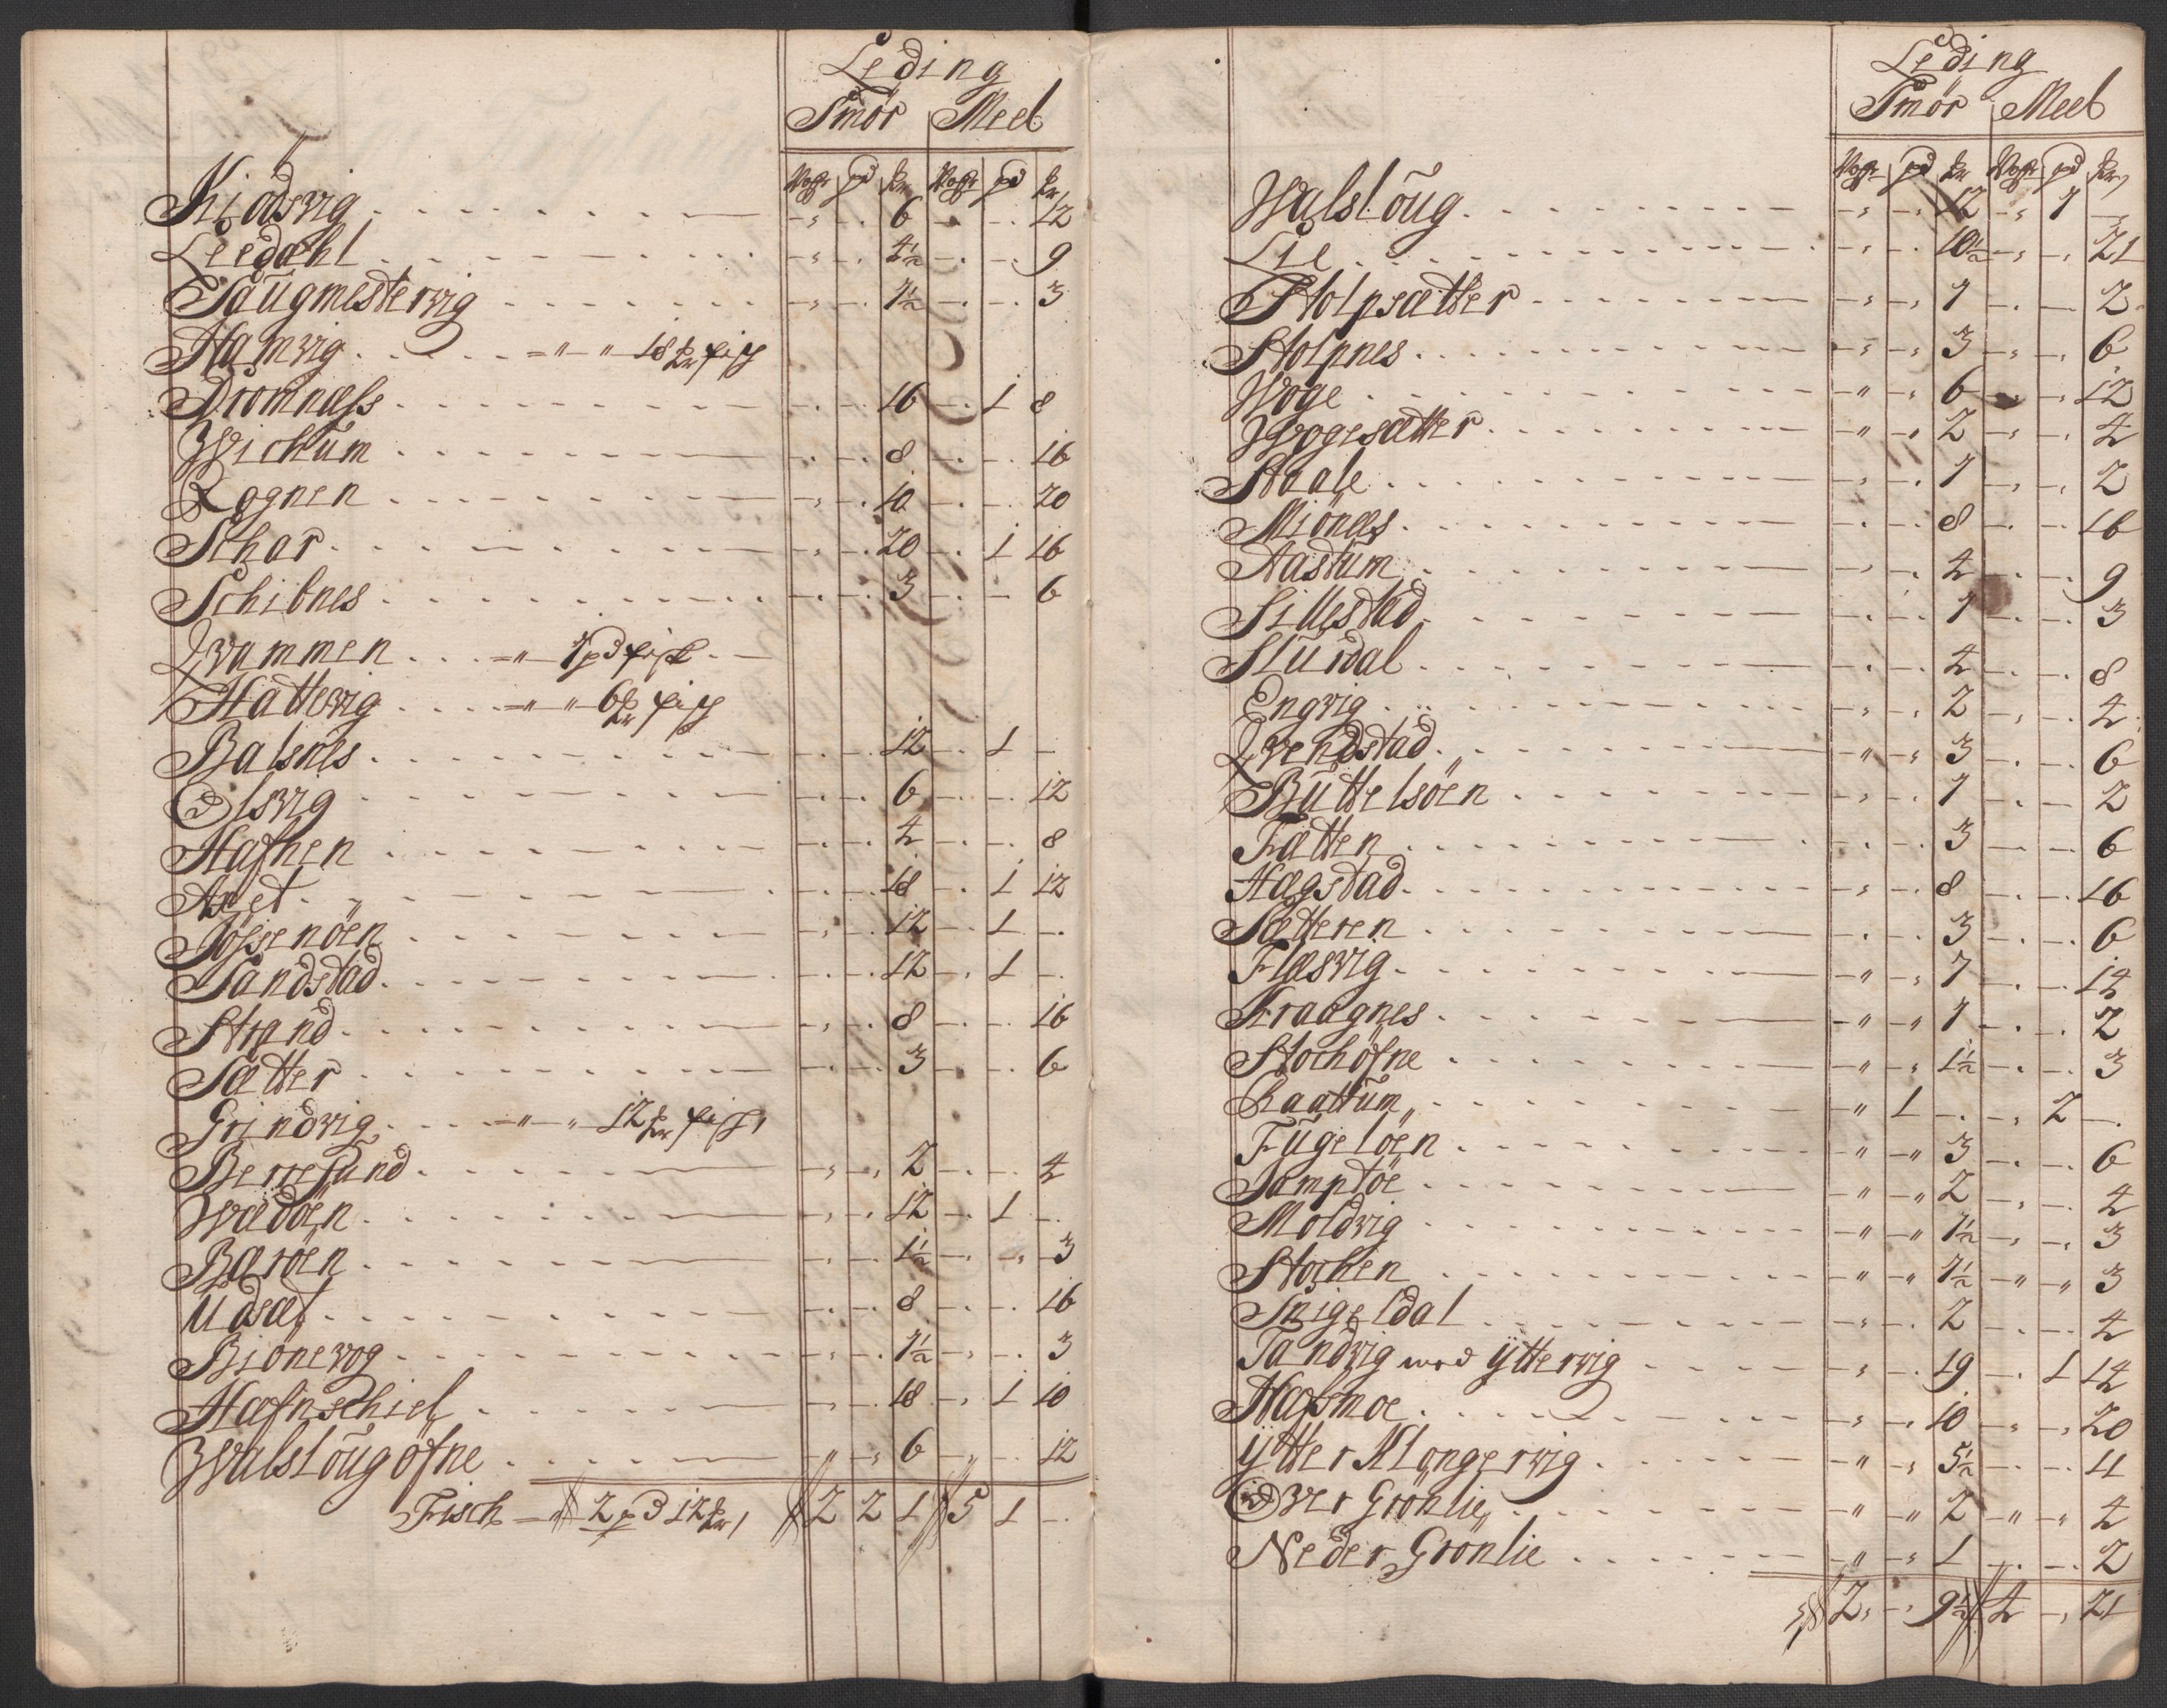 Leding
Smör Meel
Wogr pd mr Wogr pd mr
Kiödsvig - - 6 - - 12
Leedahl - - 4½ - - 9
Saugmestervig - - 1½ - - 3
Hamvig = " - " 18 mr fisch
Dromnæss - - 16 - 1 8
Wichum - - 8 - - 16
Rognen - - 10 - - 20
Schar - - 20 - 1 16
Schibnes - - 3 - - 6
Qvammen = " - 1 pd fisch
Hattevig = " - " 6 mr fisch
Balsnes - - 12 - 1 -
Olsvig - - 6 - - 12
Hafnen - - 4 - - 8
Axet - - 18 - 1 12
Jössenöen - - 12 - 1 -
Sandstad - - 12 - 1 -
Strand - - 8 - - 16
Sætter - - 3 - - 6
Grindvig = " - " 12 mr fisch
Berresund - - 2 - - 4
Wædöen - - 12 - 1 -
Bæröen - - 1½ - - 3
Udsæt - - 8 - - 16
Biönevog - - 1½ - - 3
Hæfnschiel - - 18 - 1 10
Walslougöfne - - 6 - - 12
Fisch - 2 pd 12 mr 2 2 1 5 1 -
Leding
Smör Meel
Wogr pd mr Wogr pd mr
Walsloug - - 12 - 1 -
Lie - - 10½ - - 21
Stolpsætter - - 1 - - 2
Stolpnes - - 3 - - 6
Woge - - 6 - - 12
Wogesætter - - 2 - - 4
Staale - - 1 - - 2
Miönes - - 8 - - 16
Aastum - - 4 - - 9
Sillestad - - 1 - - 3
Slurdal - - 4 - - 8
Engvig - - 2 - - 4
Qvendstad - - 3 - - 6
Buttelsöen - - 1 - - 2
Fætten - - 3 - - 6
Hægstad - - 8 - - 16
Sætteren - - 3 - - 6
Flæsvig - - 7 - - 14
Kraagnes - - 1 - - 2
Stochöfne - - 1½ - - 3
Raattum - 1 - - 2 -
Fugelöen - - 3 - - 6
Jamptöe - - 2 - - 4
Moldvig - - 1½ - - 3
Stochen - - 1½ - - 3
Snigeldal - - 2 - - 4
Tandvig med Yttervig - - 19 - 1 14
Hafsmoe - - 10 - - 20
Ytter Klongervig - - 5½ - - 11
Over Grönlie - - 2 - - 4
Neder Grönlie - - 1 - - 2
2 - 9½ 4 - 21